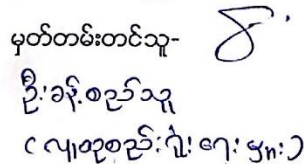 မှတ်တမ်းတင်သူ-
ဦးခန့်စည်သူ
(လျှာထုစည်းရုံးရေးမှူး)